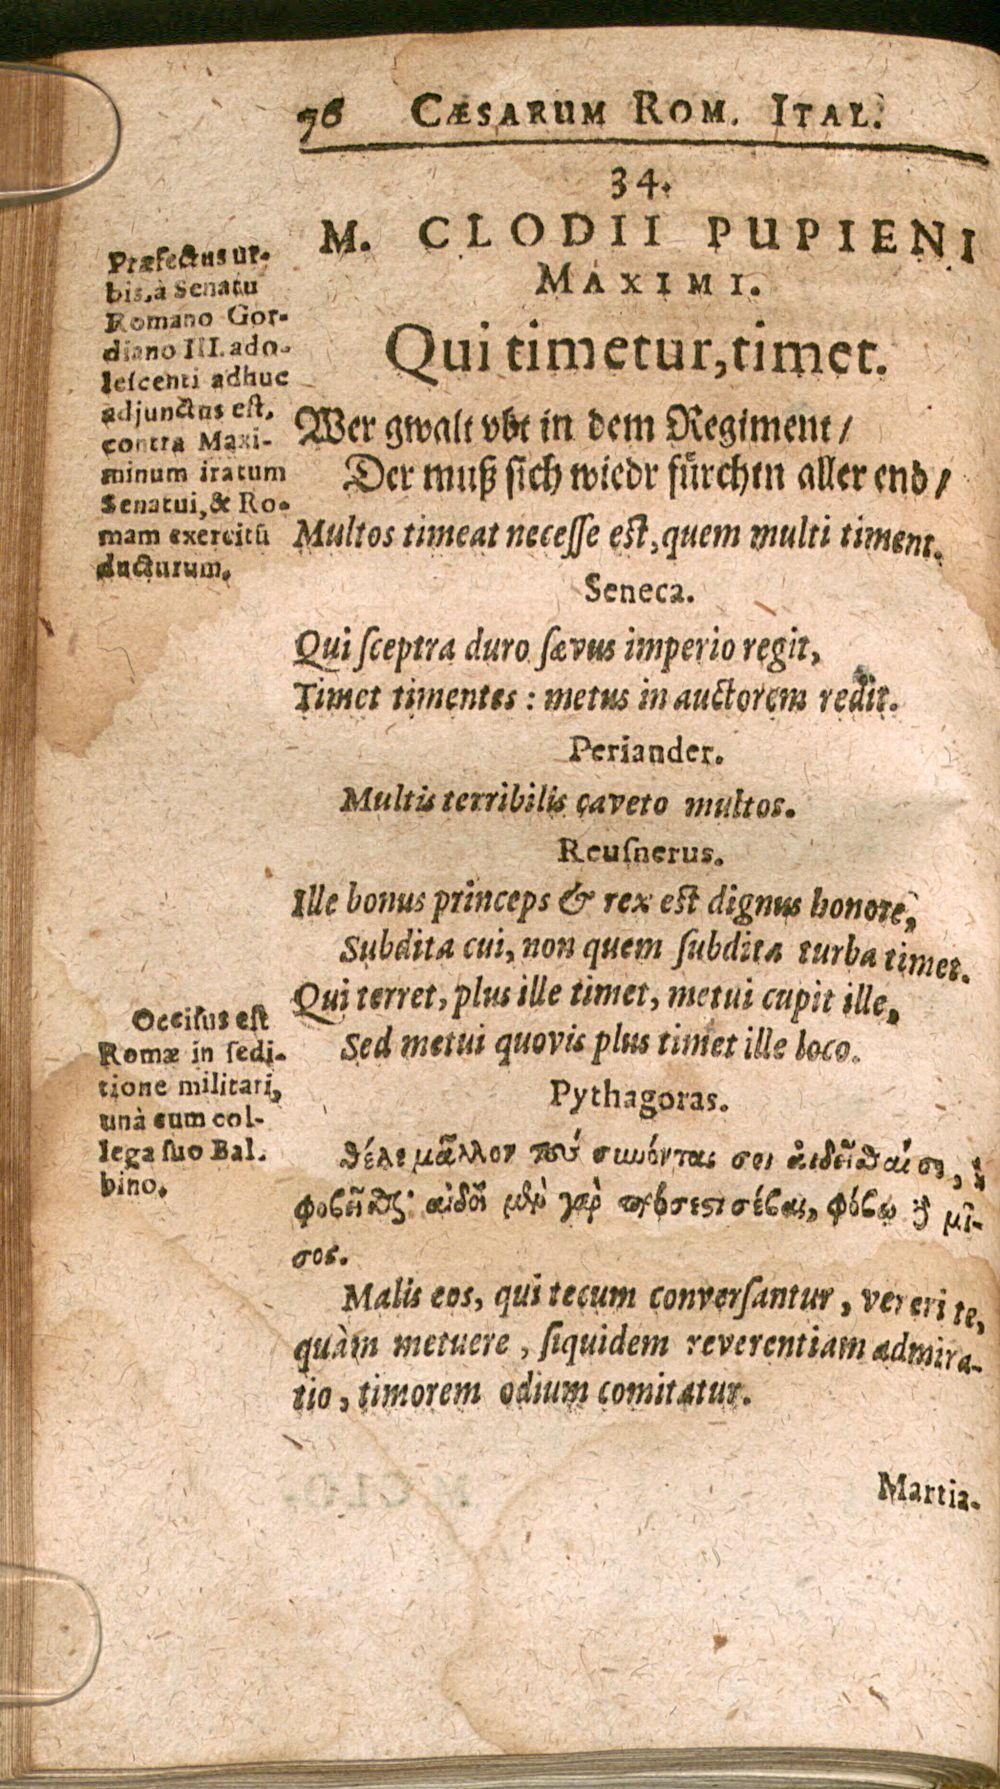 76 CÆSARUM ROM. ITAL.
34.
M. CLODII PUPIENI
MAXIMI.
Qui timetur, timet.
Wer gwalt vbt in dem Regiment /
Der muß sich wiedr fürchtn aller end /
Multos timeat necesse est, quem multi timent.
Seneca.
Qui sceptra duro sævus imperio regit,
Timet timentes : metus in auctorem redit.
Periander.
Multis terribilis caveto multos.
Reusnerus.
Ille bonus princeps & rex est dignus honore,
Subdita cui, non quem subdita turba timet.
Qui terret, plus ille timet, metui cupit ille,
Sed metui quovis plus timet ille loco.
Pythagoras.
θέλε μᾶλλον τοὺς συνόντας σοι αἰδεῖσθαί σε, ἢ
φοβεῖσθαι· αἰδοῖ μὲν γὰρ πρόσεστι σέβας, φόβῳ δὲ μῖ-
σος.
Malis eos, qui tecum conversantur, vereri te,
quàm metuere, siquidem reverentiam admira-
tio, timorem odium comitatur.
Martia-
Præfectus ur-
bis, à Senatu
Romano Gor-
diano III. ado-
lescenti adhuc
adjunctus est,
contra Maxi-
minum iratum
Senatui, & Ro-
mam exercitũ
ducturum.
Occisus est
Romæ in sedi-
tione militari,
unà cum col-
lega suo Bal-
bino.